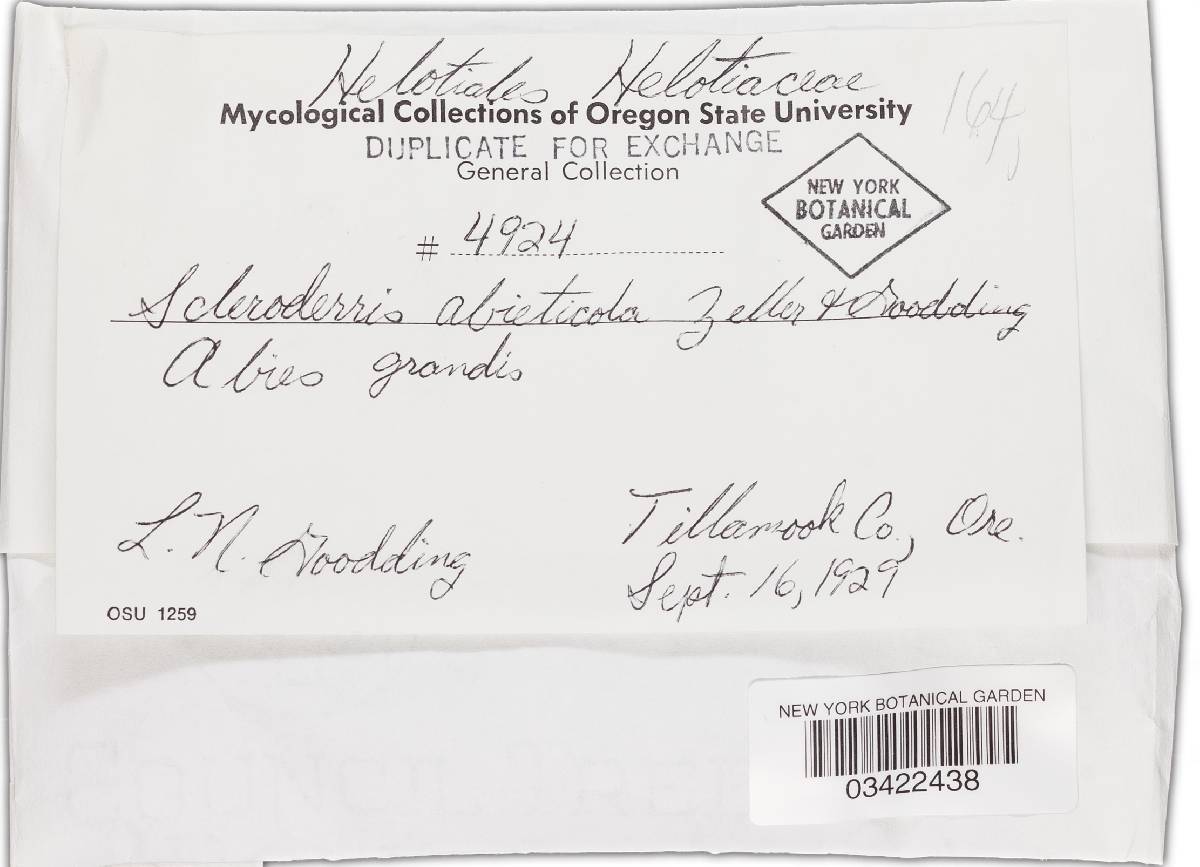 Helotiales Helotiaceae
Mycological Collections of Oregon State University
164
DUPLICATE FOR EXCHANGE
General Collection
NEW YORK
BOTANICAL
GARDEN
# 4924
Scleroderris abieticola Zeller & Goodding
Abies grandis
L. N. Goodding
Tillamook Co., Ore.
Sept. 16, 1929
OSU 1259
NEW YORK BOTANICAL GARDEN
03422438